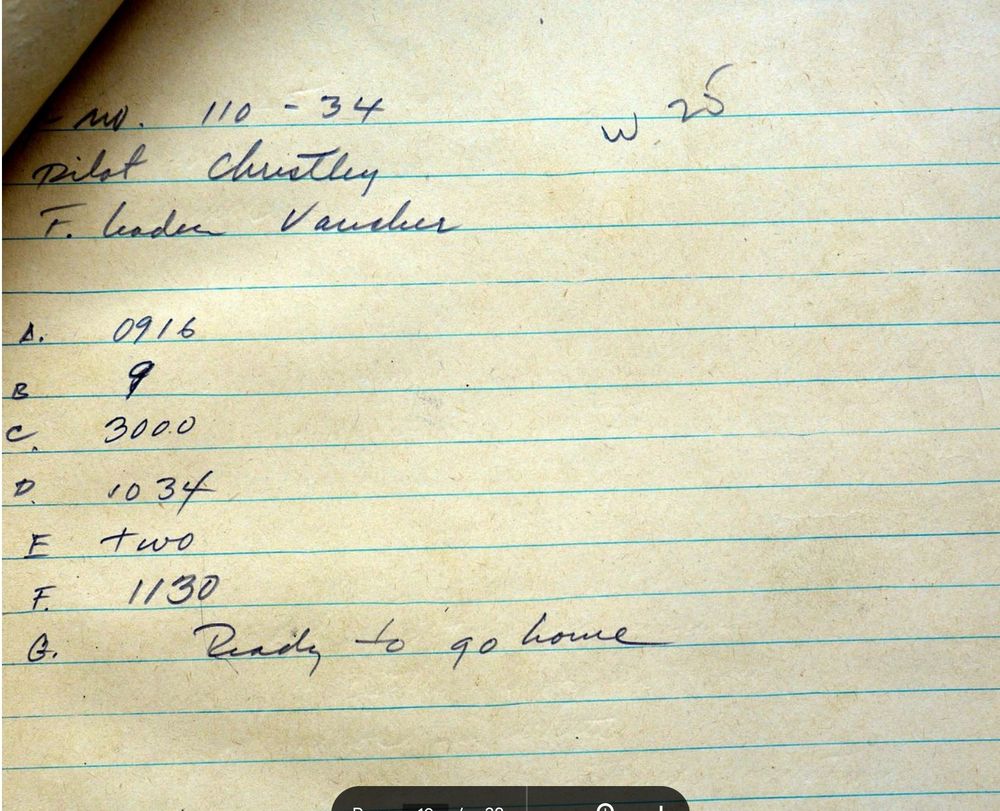 no. 110 - 34
W 25
Pilot Christley
F. leader Vaucher
A. 0916
B 9
C. 3000
D. 1034
E two
F. 1130
G. Ready to go home